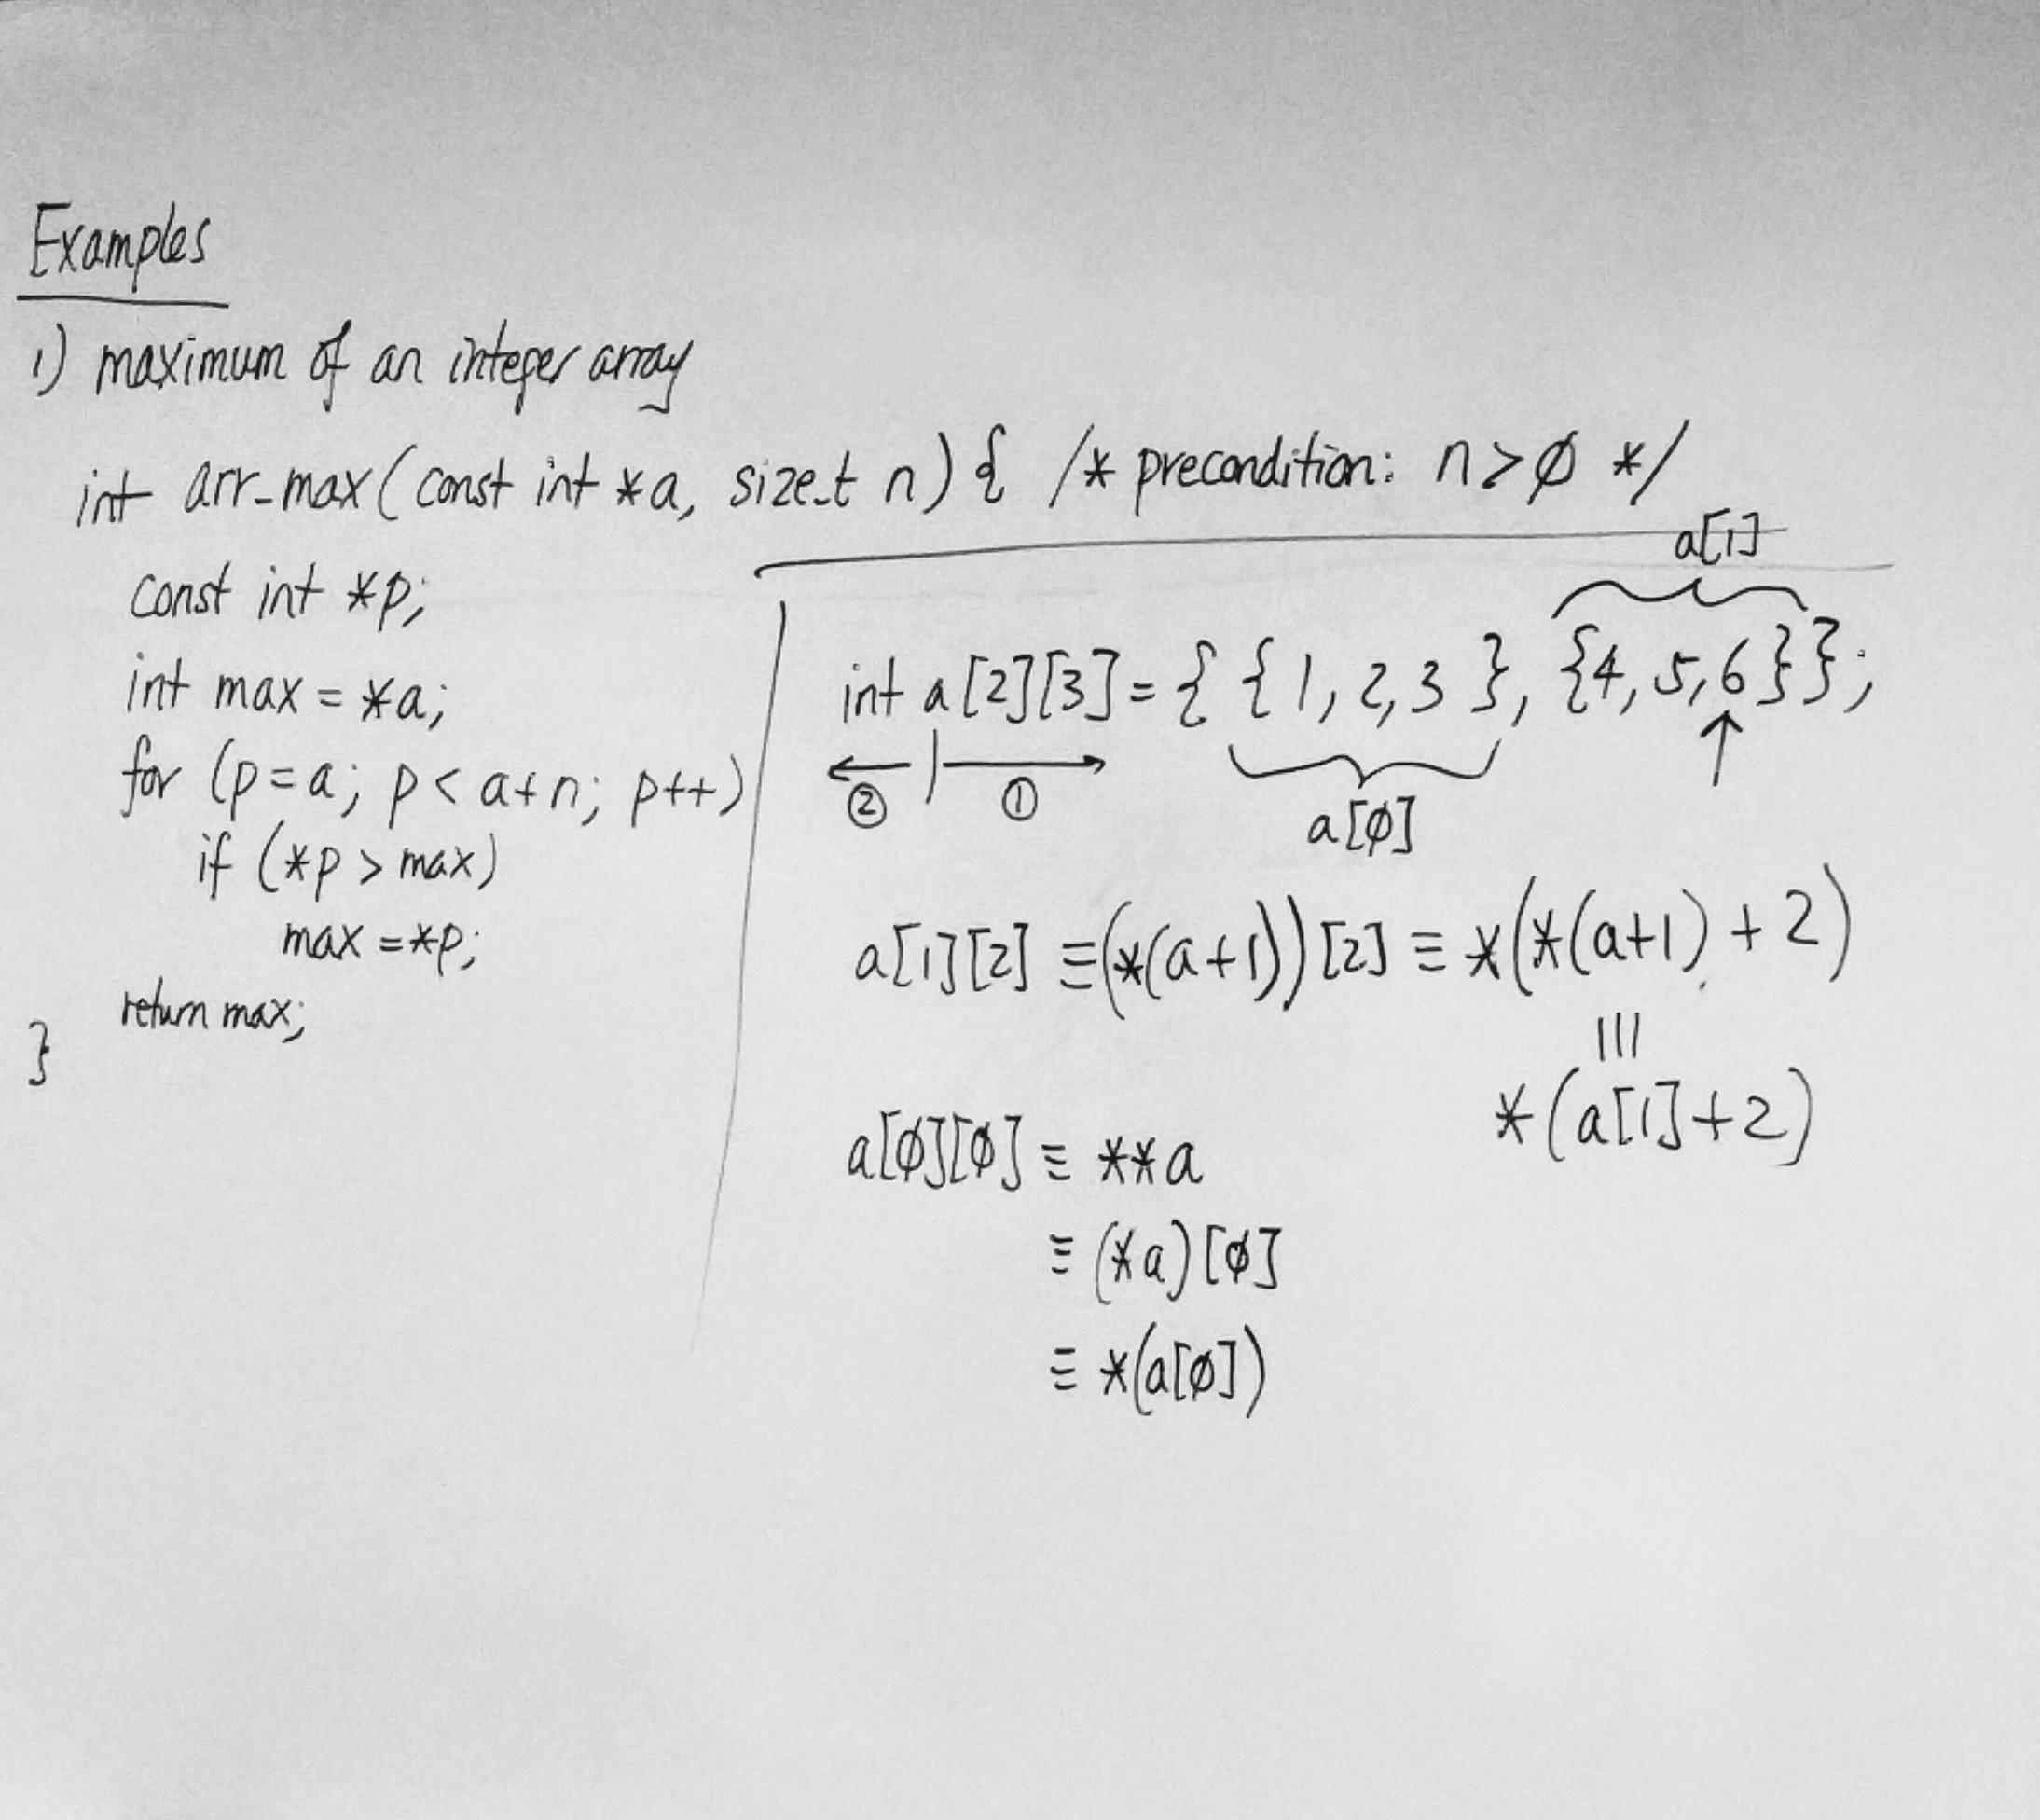 Examples
1) maximum of an integer array
int arr_max(const int *a, size_t n) { /* precondition: n>ø */
const int *p;
int max = *a;
for (p=a; p < a+n; p++)
if (*p > max)
max = *p;
return max;
}
a[1]
int a[2][3] = { {1, 2, 3 }, {4, 5, 6}};
② ①
a[ø]
a[1][2] ≡ (*(a+1))[2] ≡ *(*(a+1) + 2)
≡
*(a[1]+2)
a[ø][ø] ≡ **a
≡ (*a)[ø]
≡ *(a[ø])